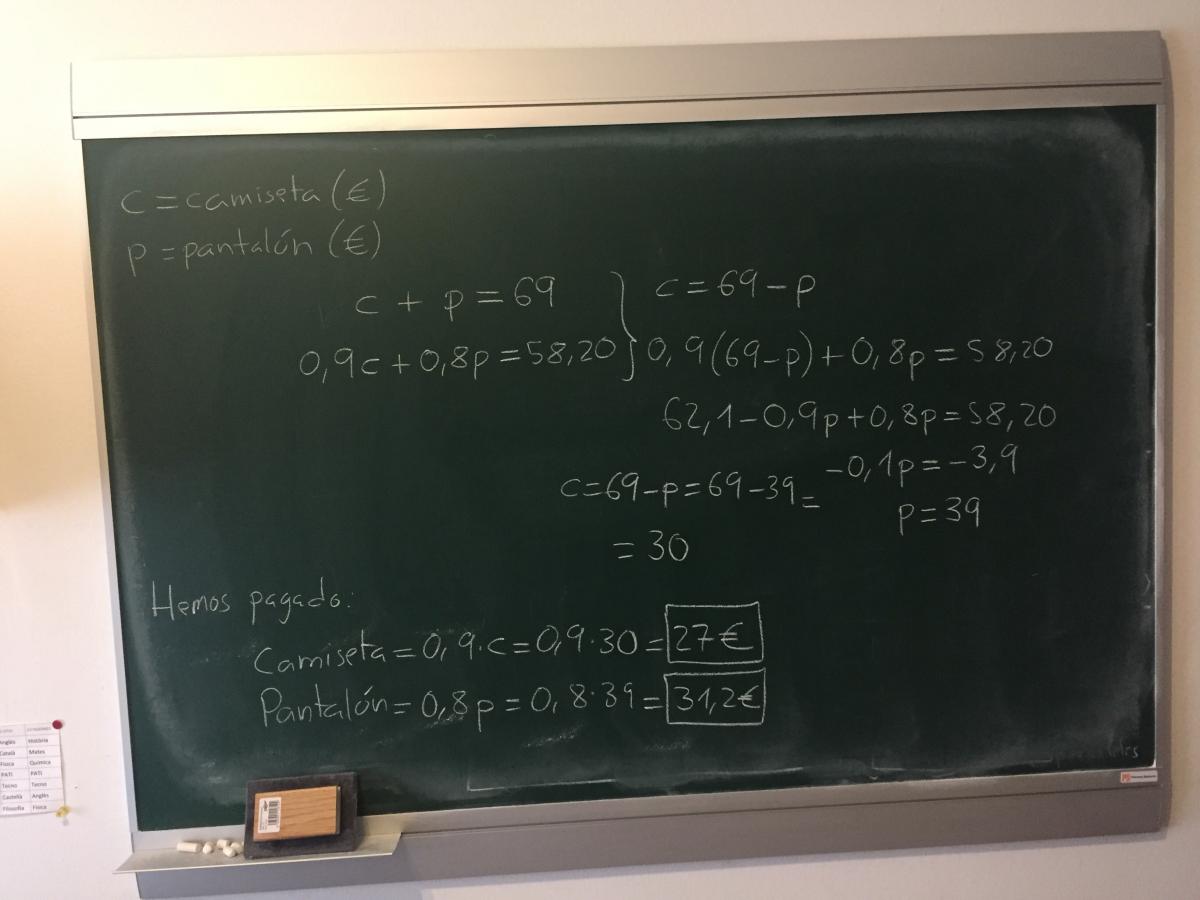 c = camiseta (€)
p = pantalón (€)
c + p = 69
0,9c + 0,8p = 58,20
c = 69 - p
0,9(69-p) + 0,8p = 58,20
62,1 - 0,9p + 0,8p = 58,20
-0,1p = -3,9
p = 39
c = 69 - p = 69 - 39 =
= 30
Hemos pagado:
Camiseta = 0,9·c = 0,9·30 = 27€
Pantalón = 0,8p = 0,8·39 = 31,2€
Anglès Història
Català Mates
Física Química
PATI PATI
Tecno Tecno
Castellà Anglès
Filosofia Física